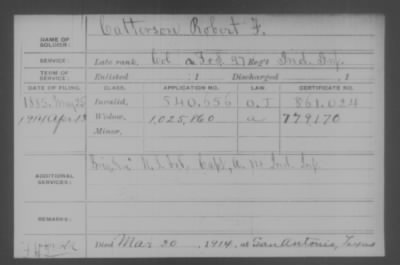 NAME OF SOLDIER: Catterson Robert F.
SERVICE: Late rank, Col & Top 97 Reg't Ind. Inf.
TERM OF SERVICE: Enlisted , 1 Discharged , 1
DATE OF FILING. CLASS. APPLICATION NO. LAW. CERTIFICATE NO.
1885, May 25 Invalid, 540,656 O.J 861,024
1914 Apr 13 Widow, 1,025,860 a 779170
Minor,
ADDITIONAL SERVICES: U.S. Vol. Capt, A, Ind. Inf
REMARKS:
Died Mar 20, 1914, at San Antonio, Texas